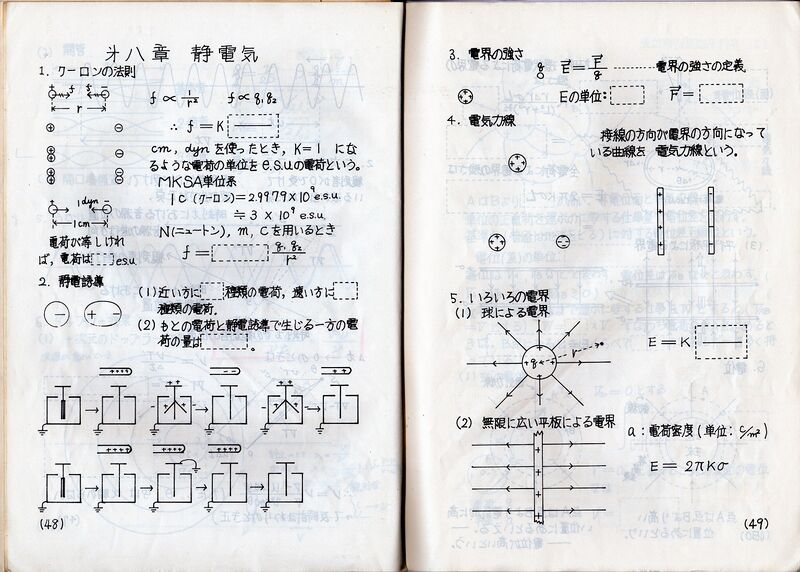 第八章 静電気
1. クーロンの法則
+ f f +
r
f ∝ 1/r² f ∝ q₁q₂
∴ f = K
cm, dyn を使ったとき, K=1 にな
るような電荷の単位を e.s.u の電荷という。
MKSA単位系
1C (クーロン) = 2.9979×10⁹ e.s.u.
≒ 3 × 10⁹ e.s.u.
N(ニュートン), m, C を用いるとき
f = q₁q₂/r²
1dyn
1cm
電荷が等しければ
ば, 電荷は e.s.u
2. 静電誘導
(1) 近い方に 種類の電荷, 遠い方に
種類の電荷。
(2) もとの電荷と静電誘導で生じる一方の電
荷の量は 。
(48)
3. 電界の強さ
q E = F/q ……… 電界の強さの定義
Eの単位: F =
4. 電気力線
接線の方向が電界の方向になって
いる曲線を 電気力線という。
5. いろいろの電界
(1) 球による電界
q r
E = K
(2) 無限に広い平板による電界
σ : 電荷密度 (単位: C/m²)
E = 2πKσ
(49)